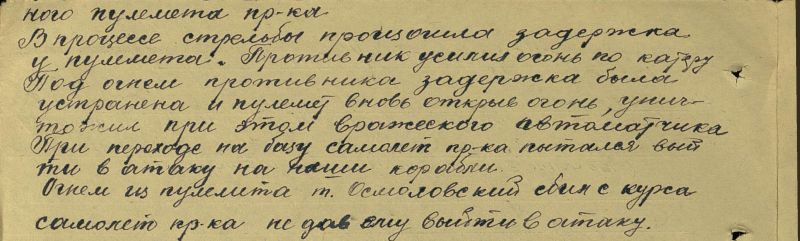 ного пулемета пр-ка
В процессе стрельбы произошла задержка
у пулемета. Противник усилил огонь по катеру
Под огнем противника задержка была
устранена и пулемет вновь открыв огонь, унич-
тожил при этом вражеского автоматчика
При переходе на базу самолет пр-ка пытался вый
ти в атаку на наши корабли.
Огнем из пулемета т. Осмоловский сбил с курса
самолет пр-ка не дав ему выйти в атаку.